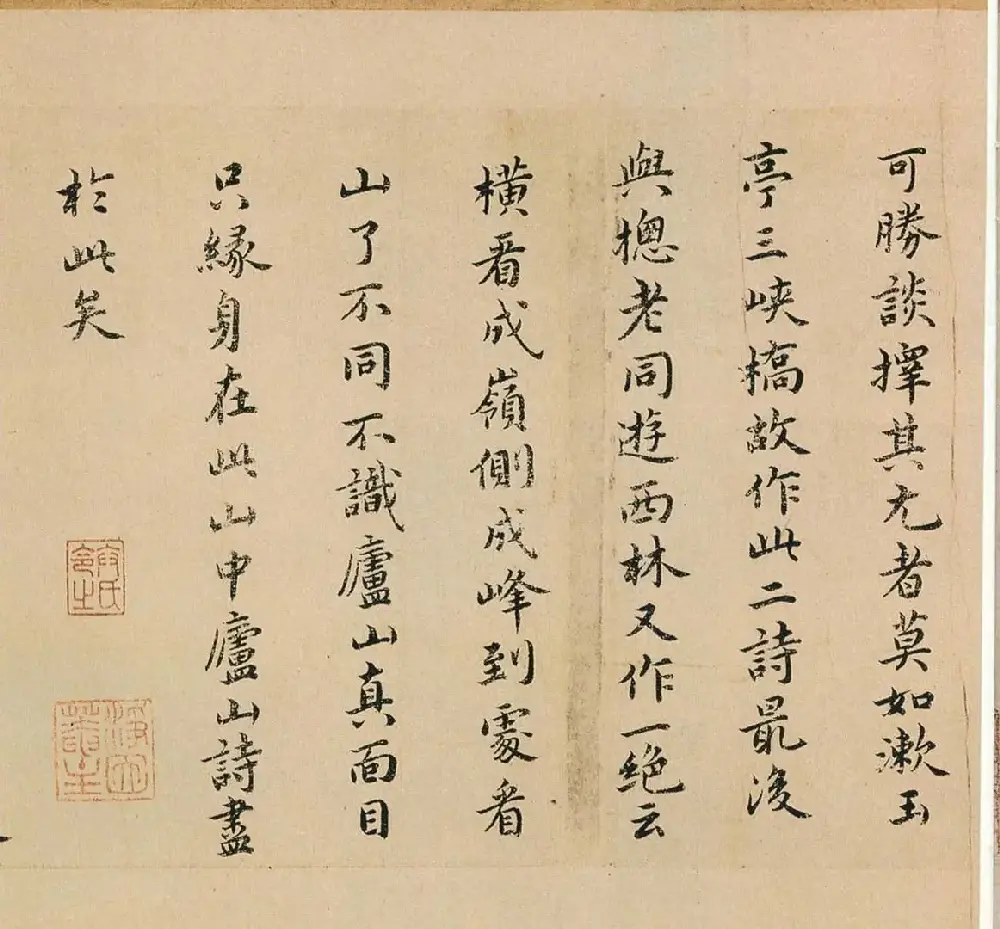 可勝談擇其尤者莫如漱玉
亭三峽橋故作此二詩最後
與摠老同遊西林又作一絕云
橫看成嶺側成峰到處看
山了不同不識廬山真面目
只緣身在此山中廬山詩盡
於此矣